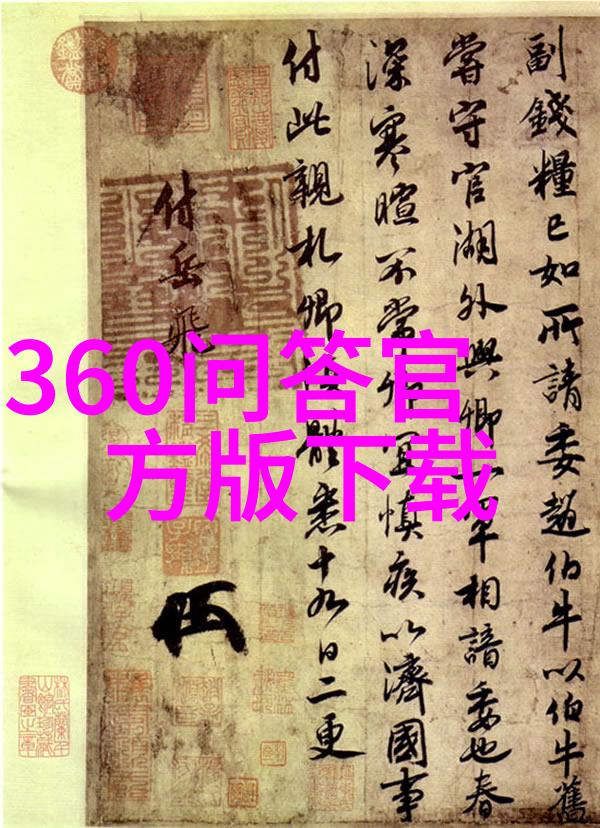 360问答官
方版下载
副錢糧已如所請委趙伯牛以伯牛舊
嘗守官湖外與卿一軍相諳委也春
深寒暄不常卿宜慎疾以濟國事
付此親札卿體悉十九日二更
付岳飛